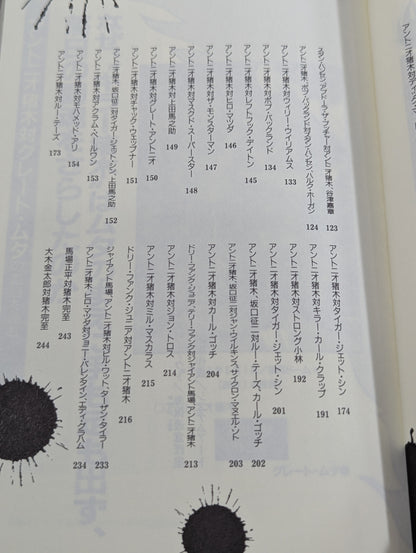 スタン・ハンセン、アブドーラ・ザ・ブッチャー対アントニオ猪木、谷津嘉章 123
アントニオ猪木、ボブ・バックランド対スタン・ハンセン、ハルク・ホーガン 124
アントニオ猪木対ウィリー・ウイリアムス 133
アントニオ猪木対ボブ・バックランド 134
アントニオ猪木対レフトフック・デイトン 145
アントニオ猪木対ヒロ・マツダ 146
アントニオ猪木対ザ・モンスターマン 147
アントニオ猪木対マスクド・スーパースター 148
アントニオ猪木対上田馬之助 149
アントニオ猪木対グレート・アントニオ 150
アントニオ猪木対チャック・ウェップナー 151
アントニオ猪木、坂口征二対タイガー・ジェット・シン、上田馬之助 152
アントニオ猪木対アクラム・ペールワン 153
アントニオ猪木対モハメッド・アリ 154
アントニオ猪木対ルー・テーズ 173
アントニオ猪木対タイガー・ジェット・シン 174
アントニオ猪木対キラー・カール・クラップ 191
アントニオ猪木対ストロング小林 192
アントニオ猪木対タイガー・ジェット・シン 201
アントニオ猪木、坂口征二対ルー・テーズ、カール・ゴッチ 202
アントニオ猪木、坂口征二対ジャン・ウイルキンス、サイクロン・マヌエル・ソト 203
アントニオ猪木対カール・ゴッチ 204
ドリー・ファンク・ジュニア、テリー・ファンク対ジャイアント馬場、アントニオ猪木 213
アントニオ猪木対ジョン・トロス 214
アントニオ猪木対ミル・マスカラス 215
ドリー・ファンク・ジュニア対アントニオ猪木 216
ジャイアント馬場、アントニオ猪木対ビル・ワット、ターザン・タイラー 233
アントニオ猪木、ヒロ・マツダ対ジョニー・バレンタイン、エディ・グラハム 234
馬場正平対猪木完至 243
大木金太郎対猪木完至 244